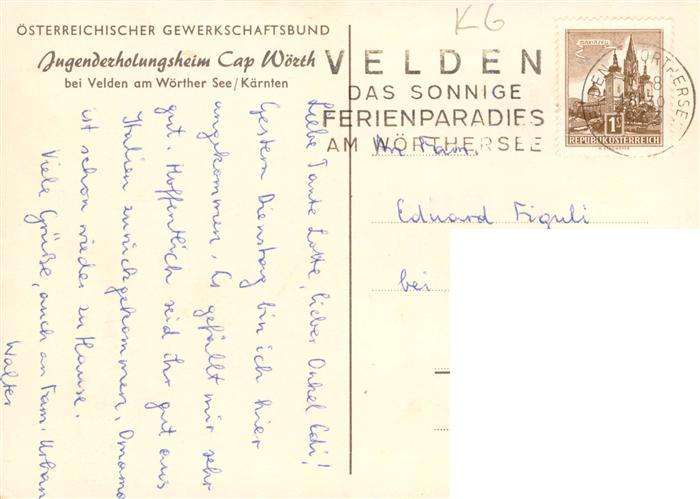 ÖSTERREICHISCHER GEWERKSCHAFTSBUND
Jugenderholungsheim Cap Wörth
bei Velden am Wörther See/Kärnten
K6
VELDEN
DAS SONNIGE
FERIENPARADIES
AM WÖRTHERSEE
1S
REPUBLIK ÖSTERREICH
An Fam.
Eduard Figuli
bei
Liebe Tante Lotte, lieber Onkel Edi!
Gestern Dienstag bin ich hier
angekommen. Es gefällt mir sehr
gut. Hoffentlich seid ihr gut aus
Italien zurückgekommen, Omama
ist schon wieder zu Hause.
Viele Grüße, auch an Fam. Urban
Walter